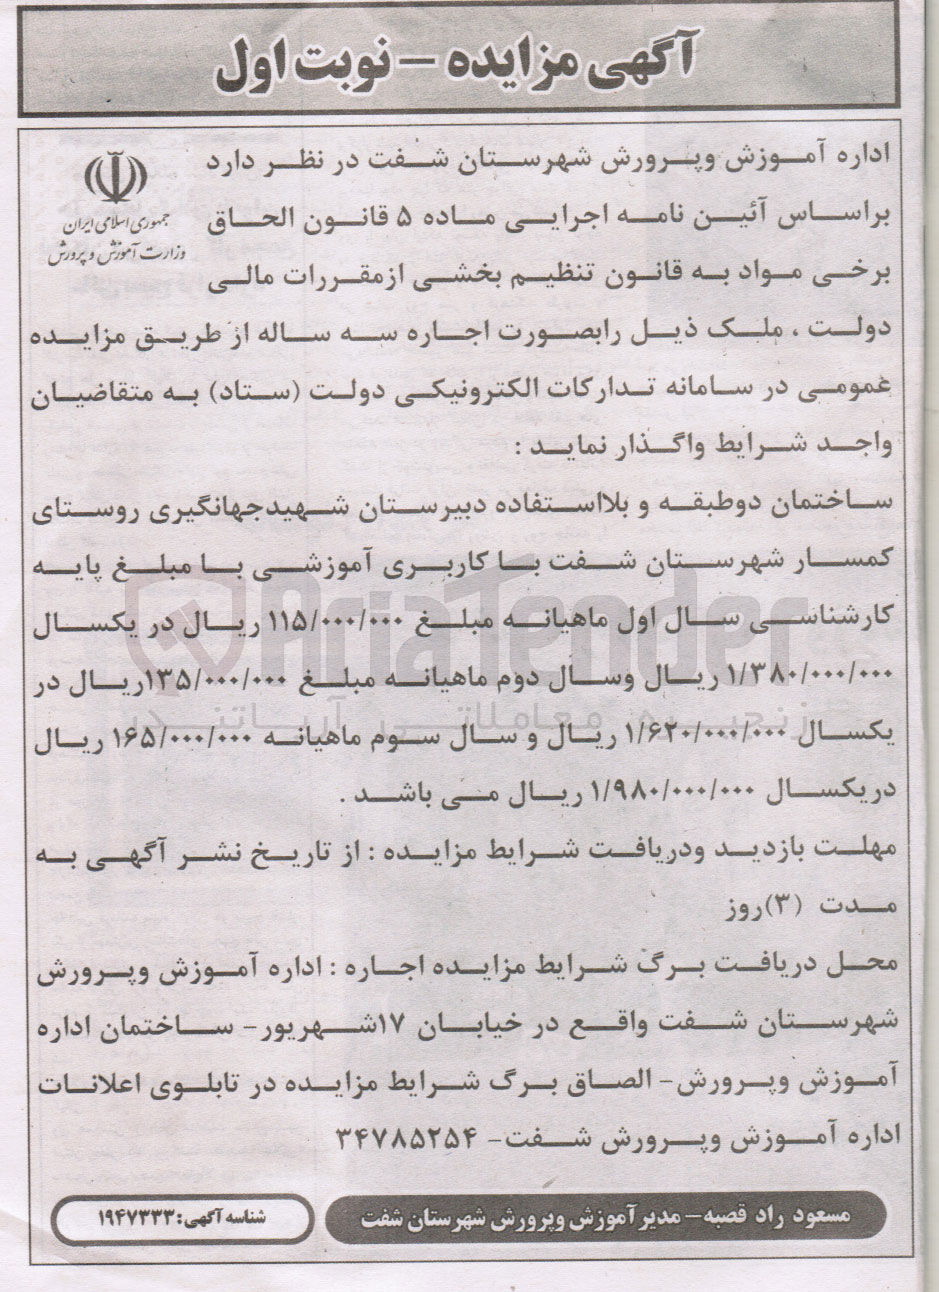 آگهی مزایده – نوبت اول
اداره آموزش وپرورش شهرستان شفت در نظر دارد
جمهوری اسلامی ایران
وزارت آموزش و پرورش
براساس آئین نامه اجرایی ماده ۵ قانون الحاق
برخی مواد به قانون تنظیم بخشی ازمقررات مالی
دولت ، ملک ذیل رابصورت اجاره سه ساله از طریق مزایده
عمومی در سامانه تدارکات الکترونیکی دولت (ستاد) به متقاضیان
واجد شرایط واگذار نماید :
ساختمان دوطبقه و بلااستفاده دبیرستان شهیدجهانگیری روستای
کمسار شهرستان شفت با کاربری آموزشی با مبلغ پایه
کارشناسی سال اول ماهیانه مبلغ ۱۱۵/۰۰۰/۰۰۰ ریال در یکسال
۱/۳۸۰/۰۰۰/۰۰۰ ریال وسال دوم ماهیانه مبلغ ۱۳۵/۰۰۰/۰۰۰ریال در
یکسال ۱/۶۲۰/۰۰۰/۰۰۰ ریال و سال سوم ماهیانه ۱۶۵/۰۰۰/۰۰۰ ریال
دریکسال ۱/۹۸۰/۰۰۰/۰۰۰ ریال می باشد .
مهلت بازدید ودریافت شرایط مزایده : از تاریخ نشر آگهی به
مدت (۳)روز
محل دریافت برگ شرایط مزایده اجاره : اداره آموزش وپرورش
شهرستان شفت واقع در خیابان ۱۷شهریور- ساختمان اداره
آموزش وپرورش- الصاق برگ شرایط مزایده در تابلوی اعلانات
اداره آموزش وپرورش شفت- ۳۴۷۸۵۲۵۴
مسعود راد قصبه – مدیر آموزش وپرورش شهرستان شفت
شناسه آگهی: ۱۹۴۷۳۳۳
AriaTender